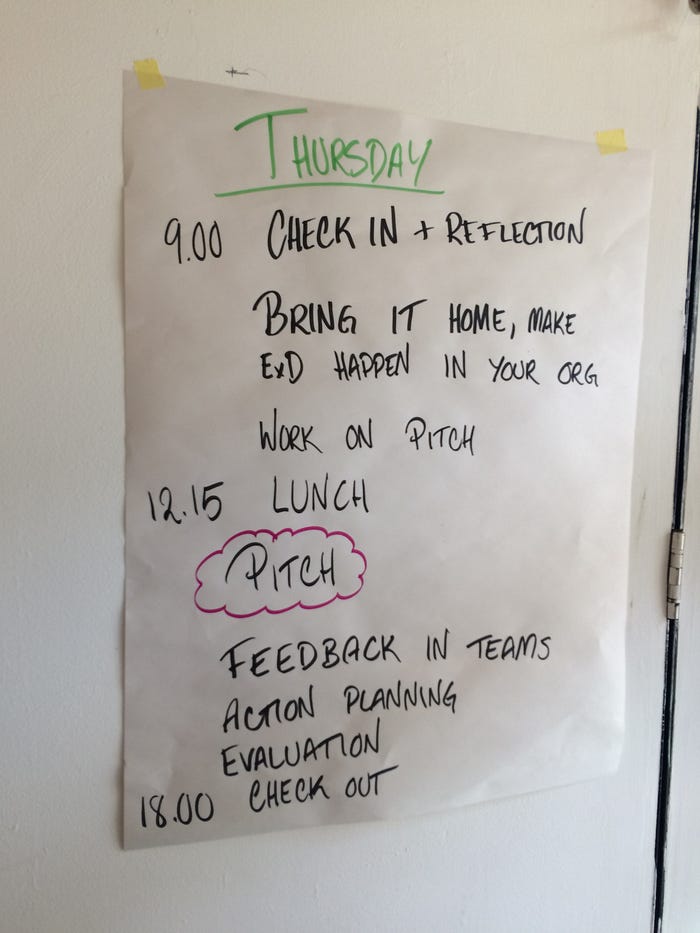 THURSDAY
9.00 CHECK IN + REFLECTION
BRING IT HOME, MAKE
ExD HAPPEN IN YOUR ORG
WORK ON PITCH
12.15 LUNCH
PITCH
FEEDBACK IN TEAMS
ACTION PLANNING
EVALUATION
18.00 CHECK OUT